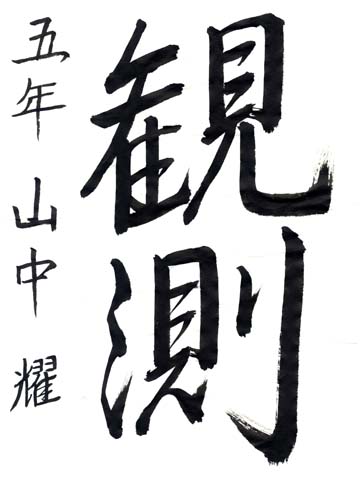 観測
五年 山中 耀